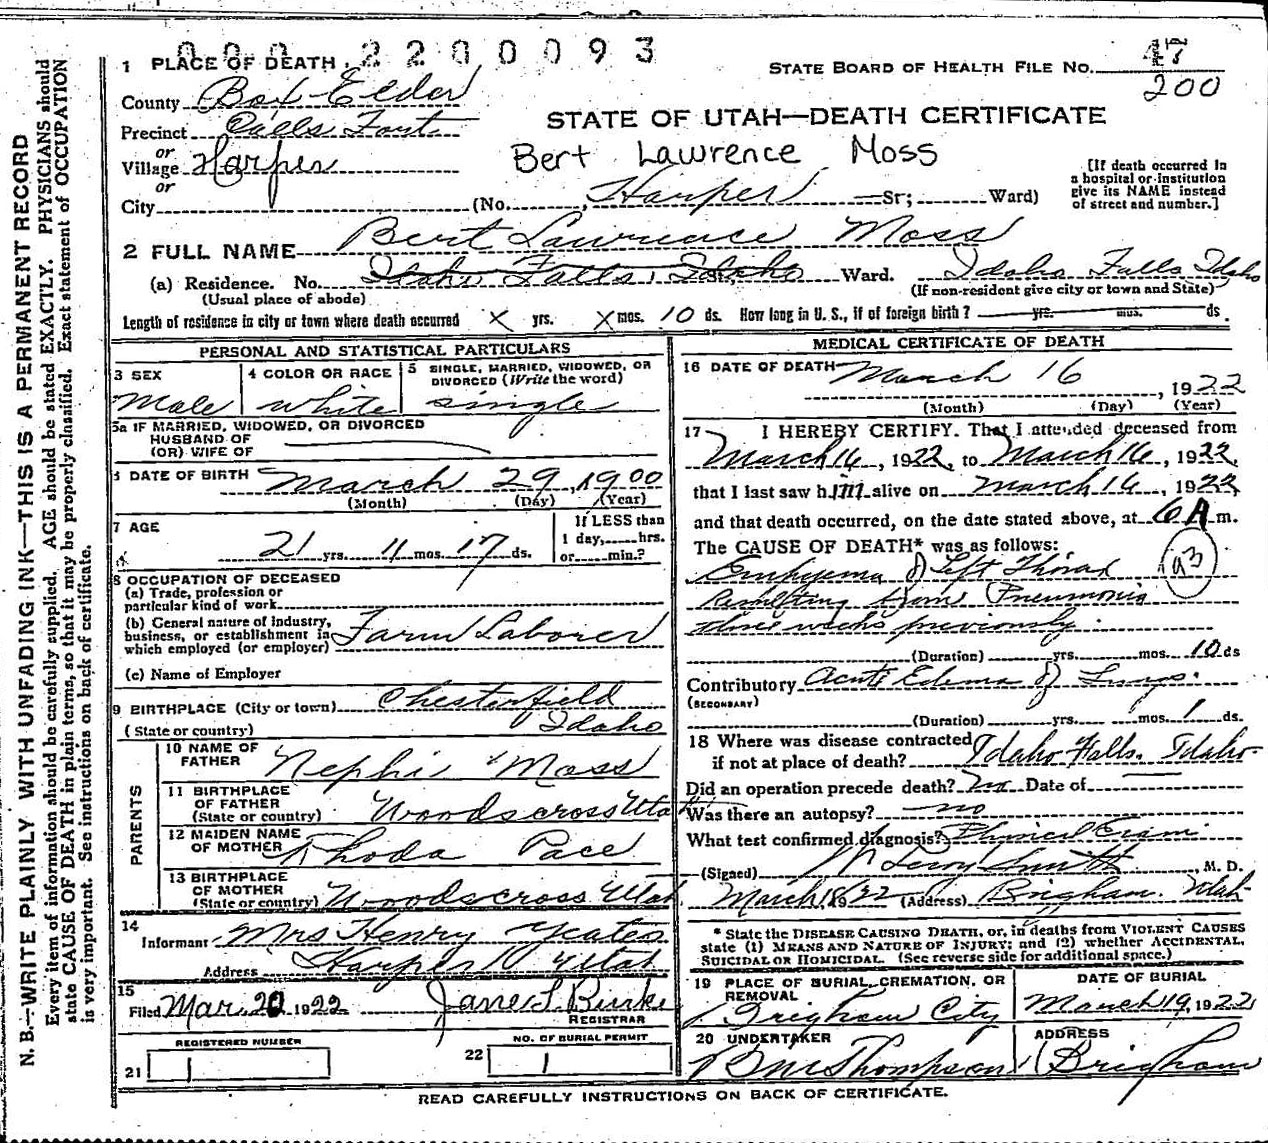 0002200093
1 PLACE OF DEATH
STATE BOARD OF HEALTH FILE NO. 47
200
County Box Elder
STATE OF UTAH—DEATH CERTIFICATE
Precinct Calls Fort
or
Village Harper
Bert Lawrence Moss
[If death occurred in
a hospital or institution
give its NAME instead
of street and number.]
or
City (No. Harper Sr; Ward)
2 FULL NAME Bert Lawrence Moss
(a) Residence. No. Idaho Falls, Idaho St., Ward. Idaho Falls Idaho
(Usual place of abode) (If non-resident give city or town and State)
Length of residence in city or town where death occurred X yrs. X mos. 10 ds. How long in U. S., if of foreign birth? yrs. mos. ds.
PERSONAL AND STATISTICAL PARTICULARS
3 SEX 4 COLOR OR RACE 5 SINGLE, MARRIED, WIDOWED, OR
DIVORCED (Write the word)
Male white single
5a IF MARRIED, WIDOWED, OR DIVORCED
HUSBAND OF
(OR) WIFE OF
DATE OF BIRTH March 29, 1900
(Month) (Day) (Year)
7 AGE If LESS than
1 day, hrs.
21 yrs. 11 mos. 17 ds. or min.?
8 OCCUPATION OF DECEASED
(a) Trade, profession or
particular kind of work
(b) General nature of industry,
business, or establishment in
which employed (or employer) Farm Laborer
(c) Name of Employer
9 BIRTHPLACE (City or town) Chesterfield
(State or country) Idaho
PARENTS
10 NAME OF
FATHER Nephi Moss
11 BIRTHPLACE
OF FATHER
(State or country) Woodscross Utah
12 MAIDEN NAME
OF MOTHER Rhoda Pace
13 BIRTHPLACE
OF MOTHER
(State or country) Woodscross Utah
14
Informant Mrs Henry Yeates
Address Harper Utah
15
Filed Mar. 20 1922 Jane S. Burke
REGISTRAR
REGISTERED NUMBER NO. OF BURIAL PERMIT
21 1 22 1
MEDICAL CERTIFICATE OF DEATH
16 DATE OF DEATH March 16, 1922
(Month) (Day) (Year)
17 I HEREBY CERTIFY. That I attended deceased from
March 16, 1922, to March 16, 1922,
that I last saw him alive on March 16, 1922
and that death occurred, on the date stated above, at 6 A m.
The CAUSE OF DEATH* was as follows:
Emphyema of Left Thorax
93
Resulting from Pneumonia
three weeks previously.
(Duration) yrs. mos. 10 ds
Contributory Acute Edema of Lungs.
(SECONDARY)
(Duration) yrs. mos. 1 ds.
18 Where was disease contracted
if not at place of death? Idaho Falls. Idaho
Did an operation precede death? no Date of
Was there an autopsy? no
What test confirmed diagnosis? Physical Exam
(Signed) Leroy Smith, M. D.
March 18 1922 (Address) Brigham. Utah
* State the DISEASE CAUSING DEATH, or, in deaths from VIOLENT CAUSES
state (1) MEANS AND NATURE OF INJURY; and (2) whether ACCIDENTAL,
SUICIDAL OR HOMICIDAL. (See reverse side for additional space.)
19 PLACE OF BURIAL, CREMATION, OR
REMOVAL DATE OF BURIAL
Brigham City March 19, 1922
20 UNDERTAKER ADDRESS
Thompson Brigham
READ CAREFULLY INSTRUCTIONS ON BACK OF CERTIFICATE.
N. B.—WRITE PLAINLY WITH UNFADING INK—THIS IS A PERMANENT RECORD
Every item of information should be carefully supplied. AGE should be stated EXACTLY. PHYSICIANS should
state CAUSE OF DEATH in plain terms, so that it may be properly classified. Exact statement of OCCUPATION
is very important. See instructions on back of certificate.